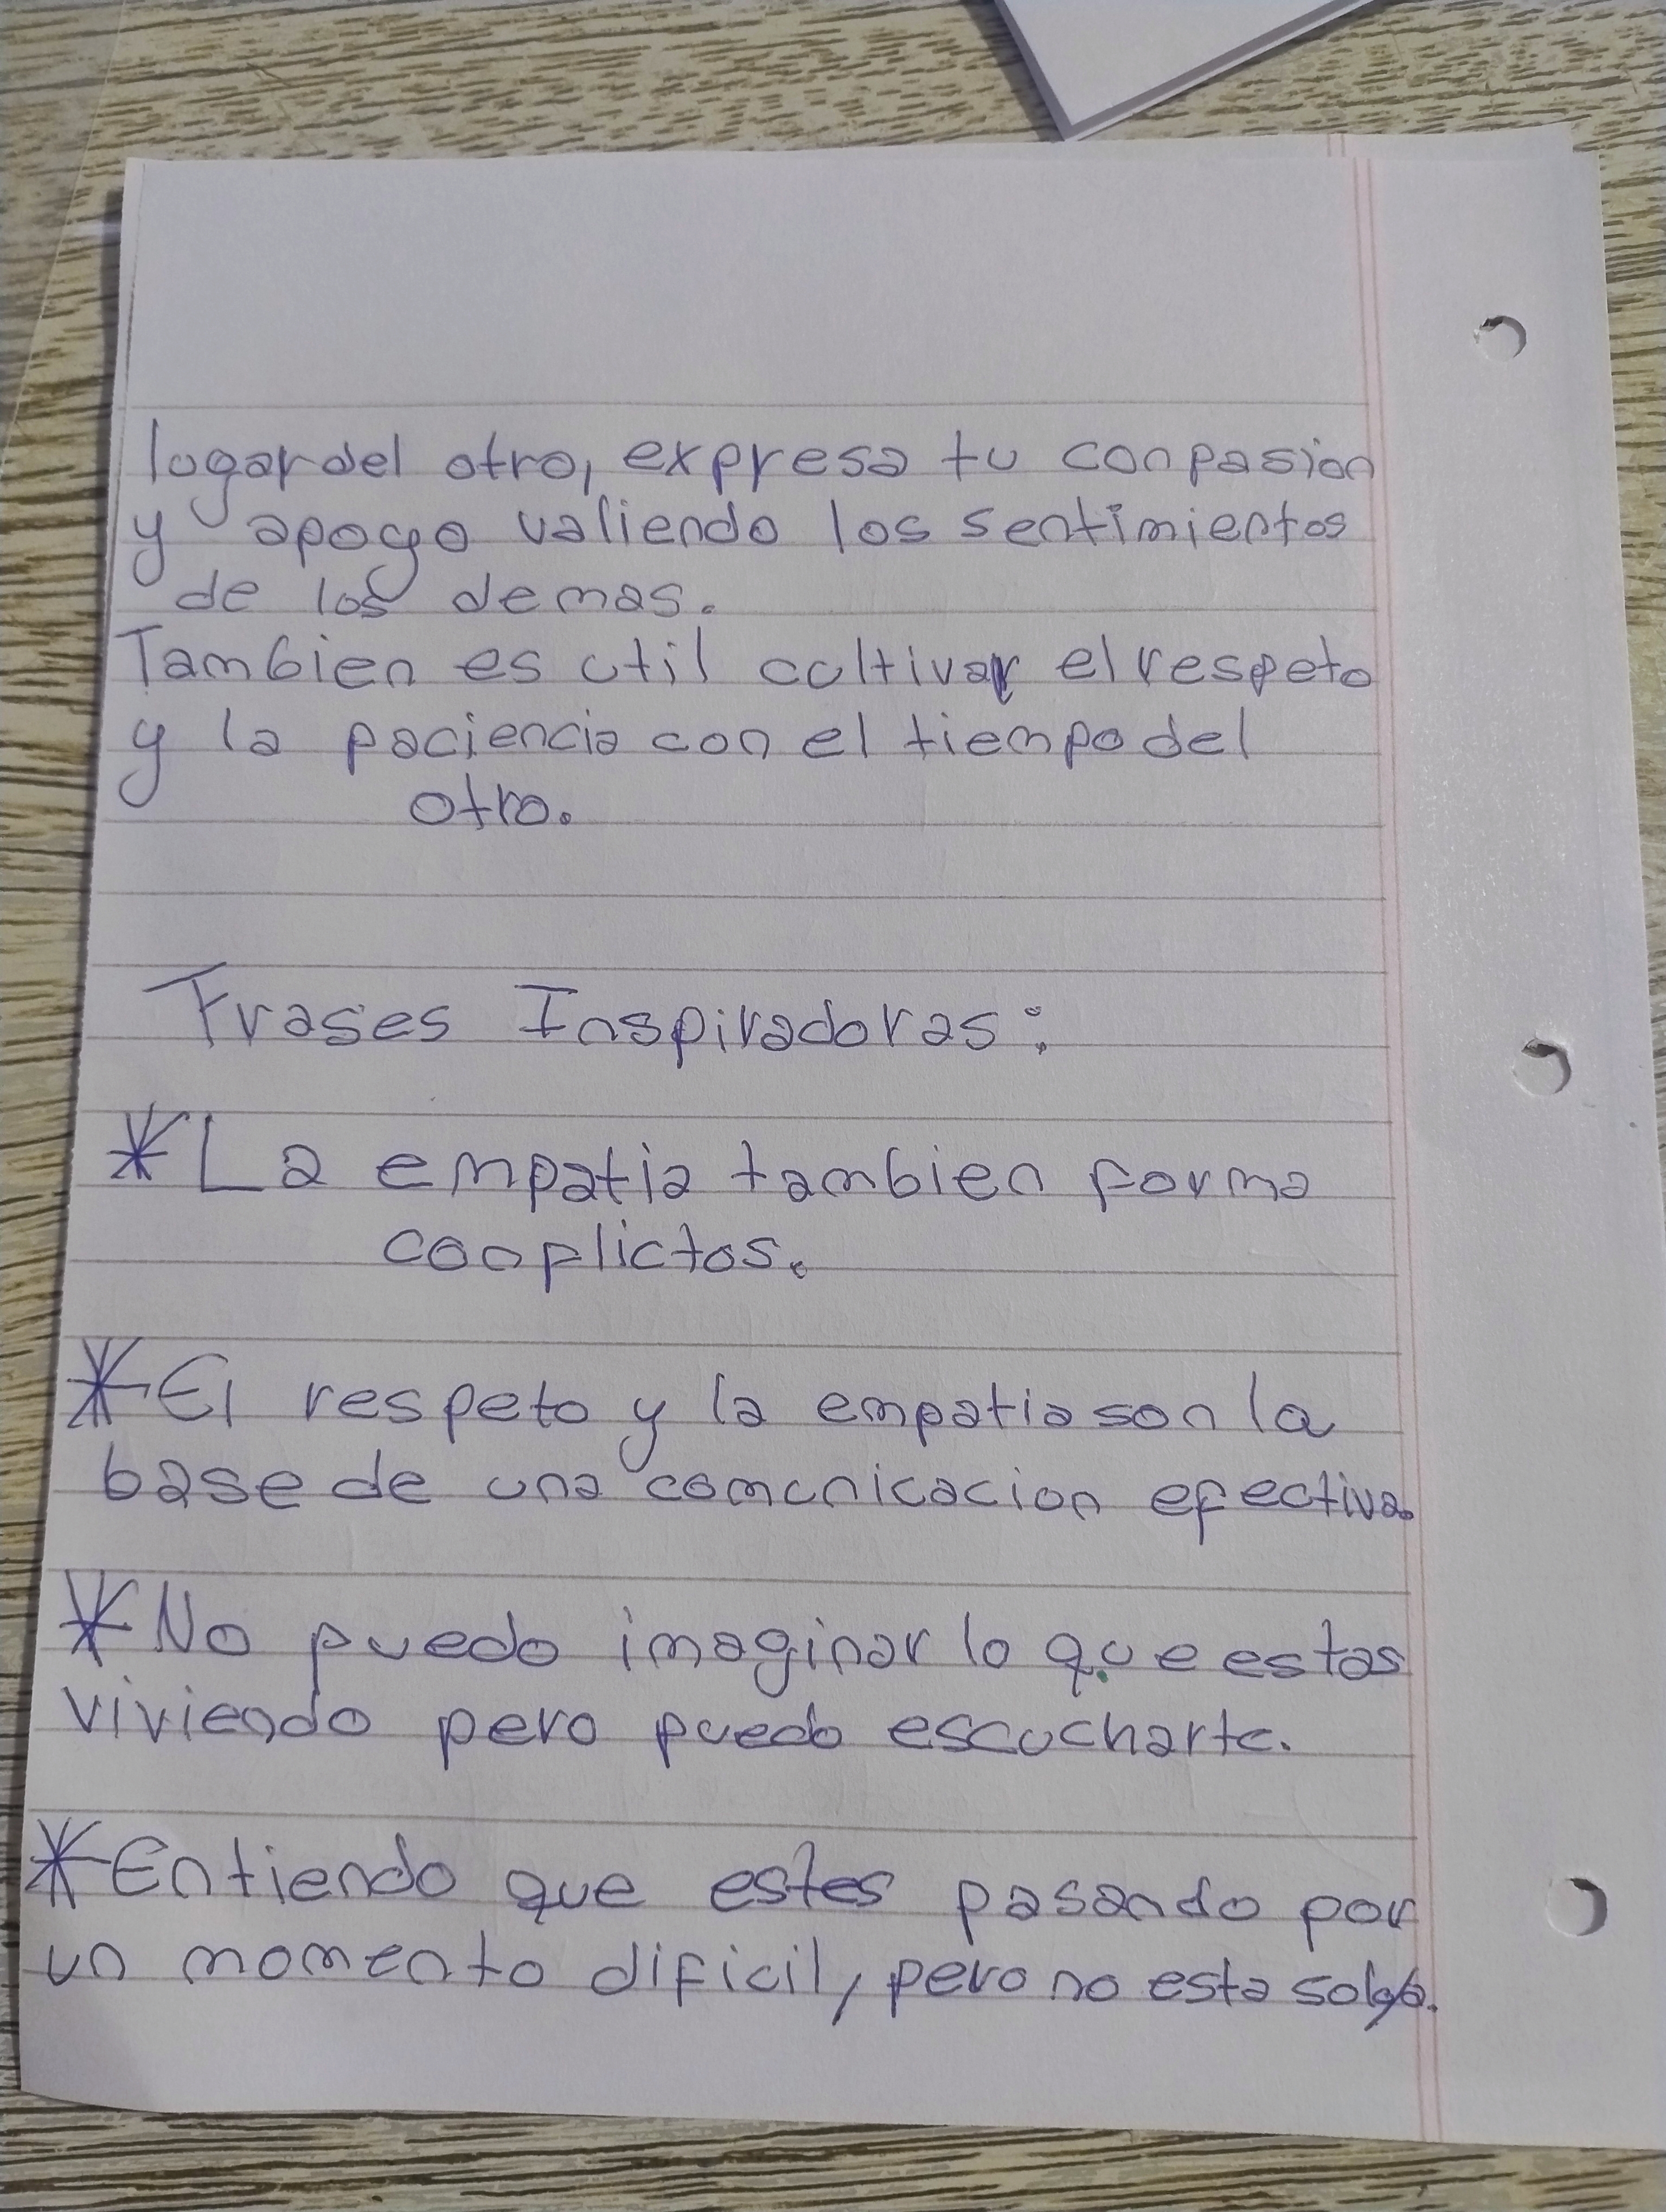 lugar del otro, expresa tu conpasion
y apoyo valiendo los sentimientos
de los demas.
Tambien es util cultivar el respeto
y la paciencia con el tiempo del
otro.
Frases Inspiradoras:
*La empatia tambien forma
conflictos.
*El respeto y la empatia son la
base de una comunicacion efectiva.
*No puedo imaginar lo que estas
viviendo pero puedo escucharte.
*Entiendo que estes pasando por
un momento dificil, pero no esta solo/a.